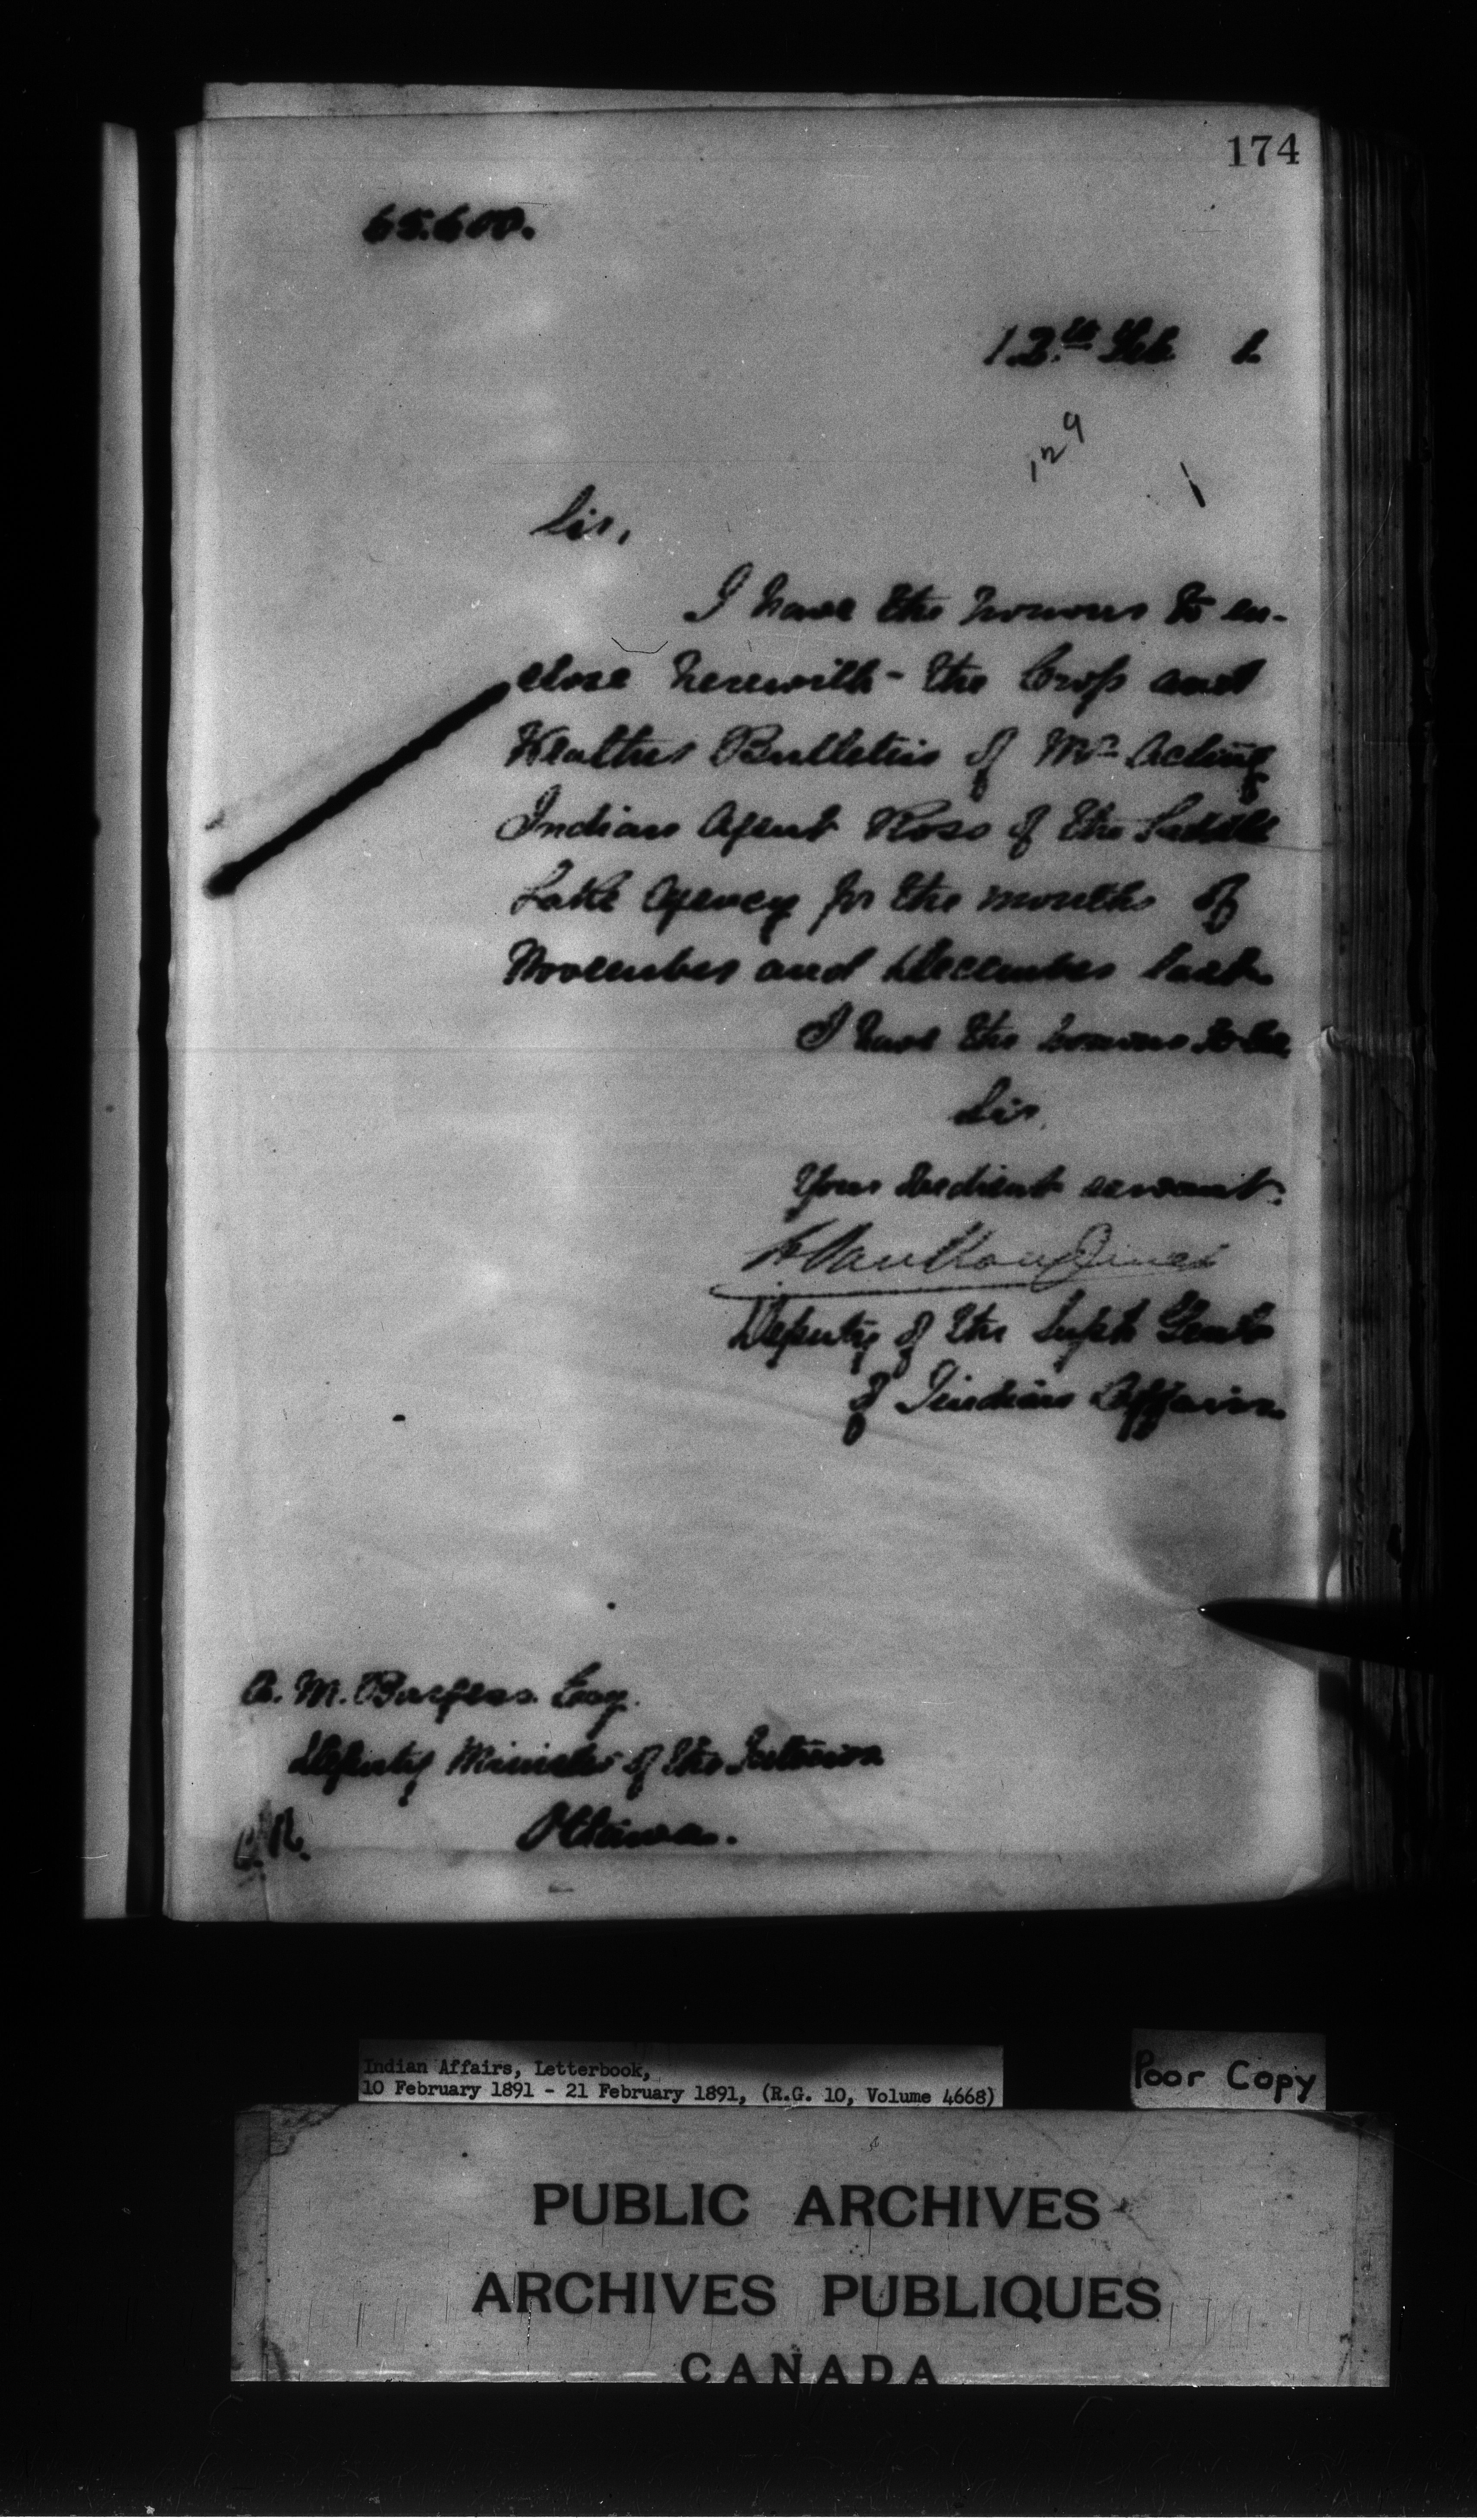 174
65.600.
13th Feb 1
129
Sir,
I have the honour to en-
close herewith - the Crop and
Weather Bulletin of Mr Acting
Indian Agent Ross of the Saddle
Lake Agency for the months of
November and December last.
I have the honour to be
Sir,
Your obedient servant.
L Vankoughnet
Deputy of the Supt Genl
of Indian Affairs.
A. M. Burgess. Esq.
Deputy Minister of the Interior
Ottawa.
Indian Affairs, Letterbook,
10 February 1891 - 21 February 1891, (R.G. 10, Volume 4668)
Poor Copy
PUBLIC ARCHIVES
ARCHIVES PUBLIQUES
CANADA